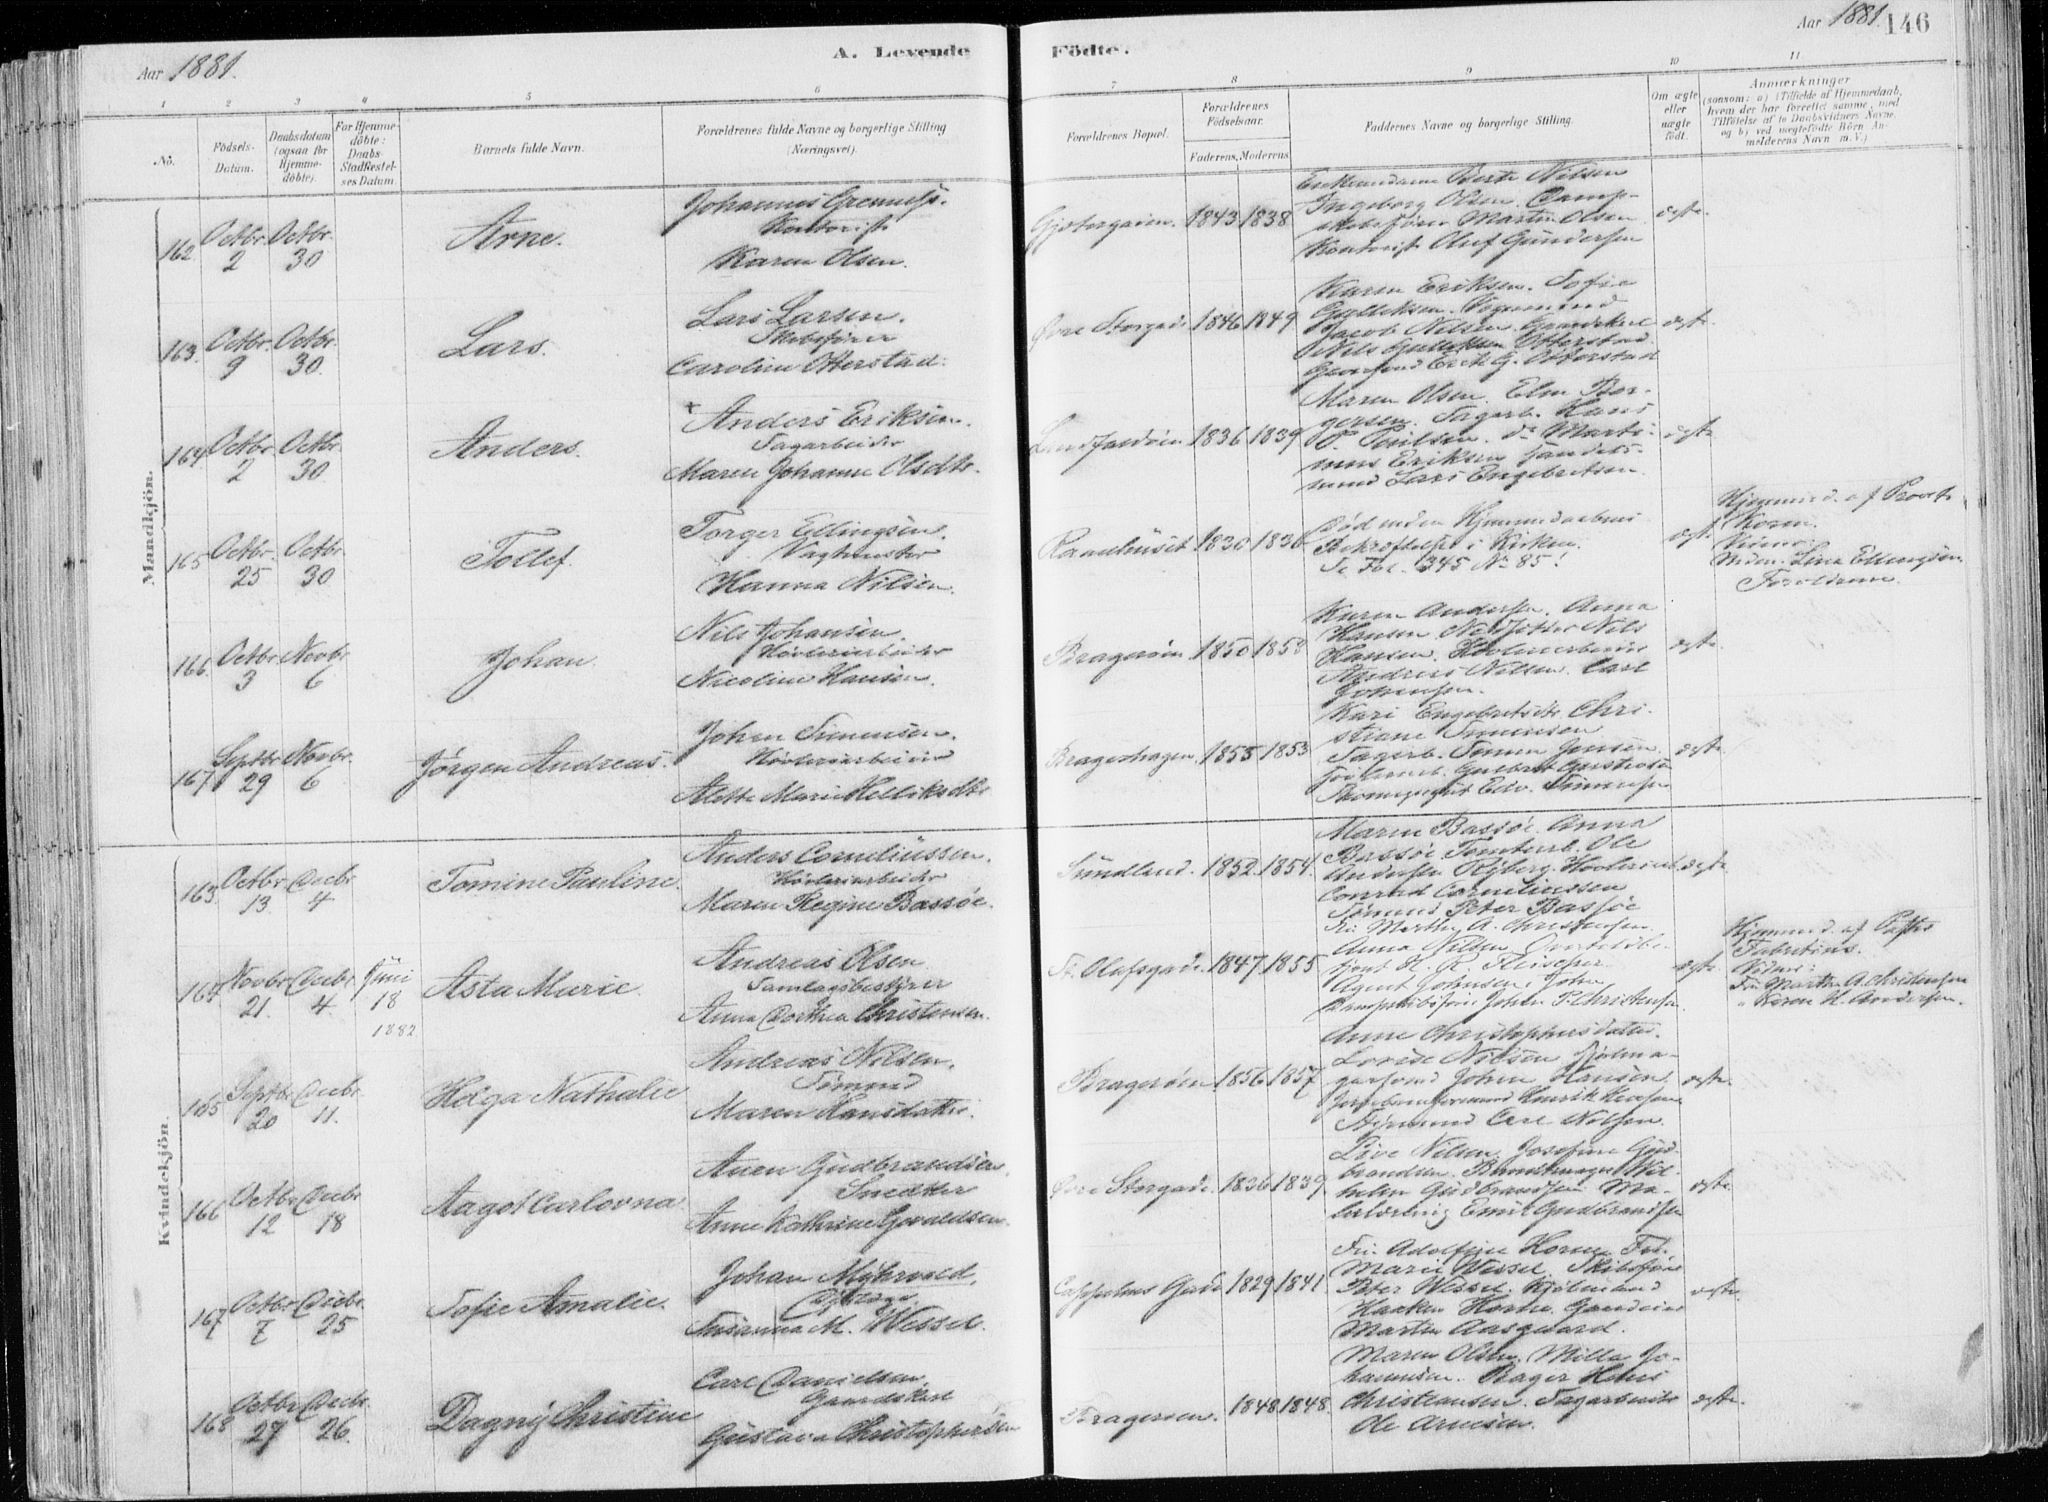 Aar 1881.
A. Levende Födte.
Aar 1881.
146
1 2 3 4 5 6 7 8 9 10 11
No.
Födsels-Datum.
Daabsdatum (ogsaa for Hjemme-döbte).
For Hjemme-döbte: Daabs Stadfæstel-ses Datum.
Barnets fulde Navn.
Forældrenes fulde Navne og borgerlige Stilling (Næringsvei).
Forældrenes Bopæl.
Forældrenes Födselsaar.
Faderens. Moderens.
Faddernes Navne og borgerlige Stilling.
Om ægte eller uægte født.
Anmerkninger
(saasom: a) (Tilfælde af Hjemmedaab,
hvem der har forrettet samme, med
Tilföielse af to Daabsvidners Navne.
og b) ved uægtefödte Börn An-
melderens Navn m.V.)
Mandkjön.
162 Octbr. 2 Octbr. 30 Arne.
Johannes
Kontorist
Karen Olsen.
1843 1838
Berte Nilsen
Ingeborg Olsen. Damp-
skibsfører Martin Olsen
Kontorist Oluf Gundersen
ægte.
163. Octbr. 9 Octbr. 30. Lars.
Lars Larsen.
Skibsfører
Caroline Otterstad.
Øvre Storgade 1846 1849
Karen Eriksen. Sofie
Gulliksen.
Jacob Nilsen. Gaardskarl
Nils Gulliksen Otterstad
Erik G. Otterstad
ægte.
164 Octbr. 2 Octbr. 30. Anders.
+ Anders Eriksen.
Sagarbeider
Maren Johanne Olsdtr.
1836 1839
Maren Olsen. Elen Bor-
gersen. Sagarb. Hans
P. Poulsen. do Marti-
nius Eriksen Handels-
mand Lars Engebretsen.
ægte
165 Octbr. 25 Octbr. 30 Tollef.
Torger Ellingsen.
Vagtmester
Hanna Nilsen.
Raadhuset 1830 1836
Død inden Hjemmedaabens
Bekræftelse i Kirken.
Se Fol. 345 No 85!
ægte
Hjemmed. af Provst
Lina Ellingsen
Forældrene.
166. Octbr. 3 Novbr. 6 Johan.
Nils Johansen.
Høvleriarbeider
Nicoline Hansen.
Bragerøen 1850 1853
Karen Andersen. Anna
Hansen Nils
Hansen. Høvleriarbeider
Andreas Nilsen. Carl
Johansen.
ægte.
167 Septbr. 29 Novbr. 6 Jørgen Andreas.
Johan Simensen.
Høvleriarbeider
Alette Marie Helliksdtr.
Brageshagen 1855 1853
Kari Engebretsdtr. Chri-
stiane Simensen
Sagarb. Simen Jensen.
Gulbrand
Edv. Simensen
ægte.
Kvindekjön.
163. Octbr. 13. Decbr. 4 Tomine Pauline.
Anders Corneliussen.
Høvleriarbeider
Maren Regine Bassøe.
Sundland. 1852. 1854.
Maren Bassøe. Anna
Bassøe Tomterb. Ole
Andersen Ryberg. Høvleriarb.
Conrad Corneliussen
Tømmerm. Peter Bassøe
ægte
164 Novbr. 21. Decbr. 4 Juni 18 1882 Asta Marie.
Andreas Olsen
Samlagsbestyrer
Anna Dorthea Christensen.
St. Olafsgade. 1847. 1855
Fru Marthe A. Christensen.
Anna Nilsen,
Agent Johnsen,
Dampskibsfører Johan P. Christensen
ægte
Hjemmed. af Pastor
Fabritius.
Fru Marthe A. Christensen
" Karen H. Andersen.
165 Septbr. 20 Decbr. 11. Helga Nathalie
Andreas Nilsen.
Sømand
Maren Hansdatter.
Bragerøen 1856 1857
Anne Christophersdatter.
Lovise Nilsen
Johan Hansen.
Henrik
Styrmand Carl Nilsen.
ægte.
166 Octbr. 12 Decbr. 18 Aagot Carlovna.
Auen Gudbrandsen.
Snedker
Anne Kathrine
Øvre Storgade. 1836 1839
Live Nilsen. Josefine Gud-
brandsen. Buntmager Wil-
helm Gudbrandsen Ma-
lerlærling Emil Gudbrandsen
ægte.
167 Octbr. 7 Decbr. 25 Sofie Amalie.
Johan Myhrvold.
Susanna M. Wessel.
Gade 1829 1841
Fru Adolfine Horne Frk.
Marie Wessel. Skibsfører
Peter Wessel. Kjøbmand
Haaken Horne.
Martin Aasgaard.
ægte.
168 Octbr. 27 Decbr. 26. Dagny Christine
Carl Danielsen.
Gaardskarl
Gustava Christophersen
Bragerøen. 1848 1848.
Maren Olsen. Milla Jo-
hannesen. Bager Hans
Christiansen. Sagarbeider
Ole Arnesen.
ægte.